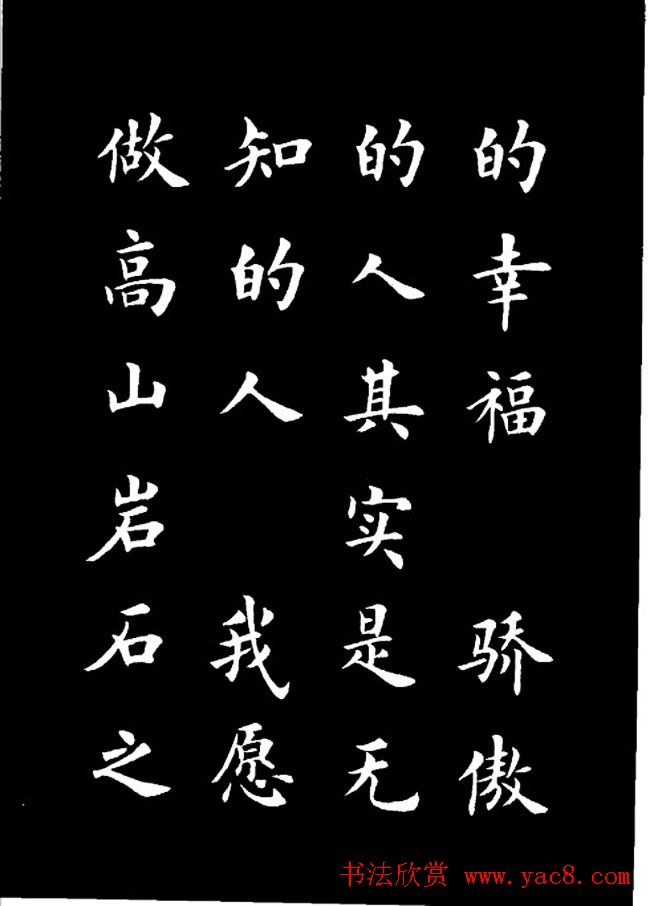 的幸福 骄傲
的人其实是无
知的人 我愿
做高山岩石之
书法欣赏 www.yac8.com